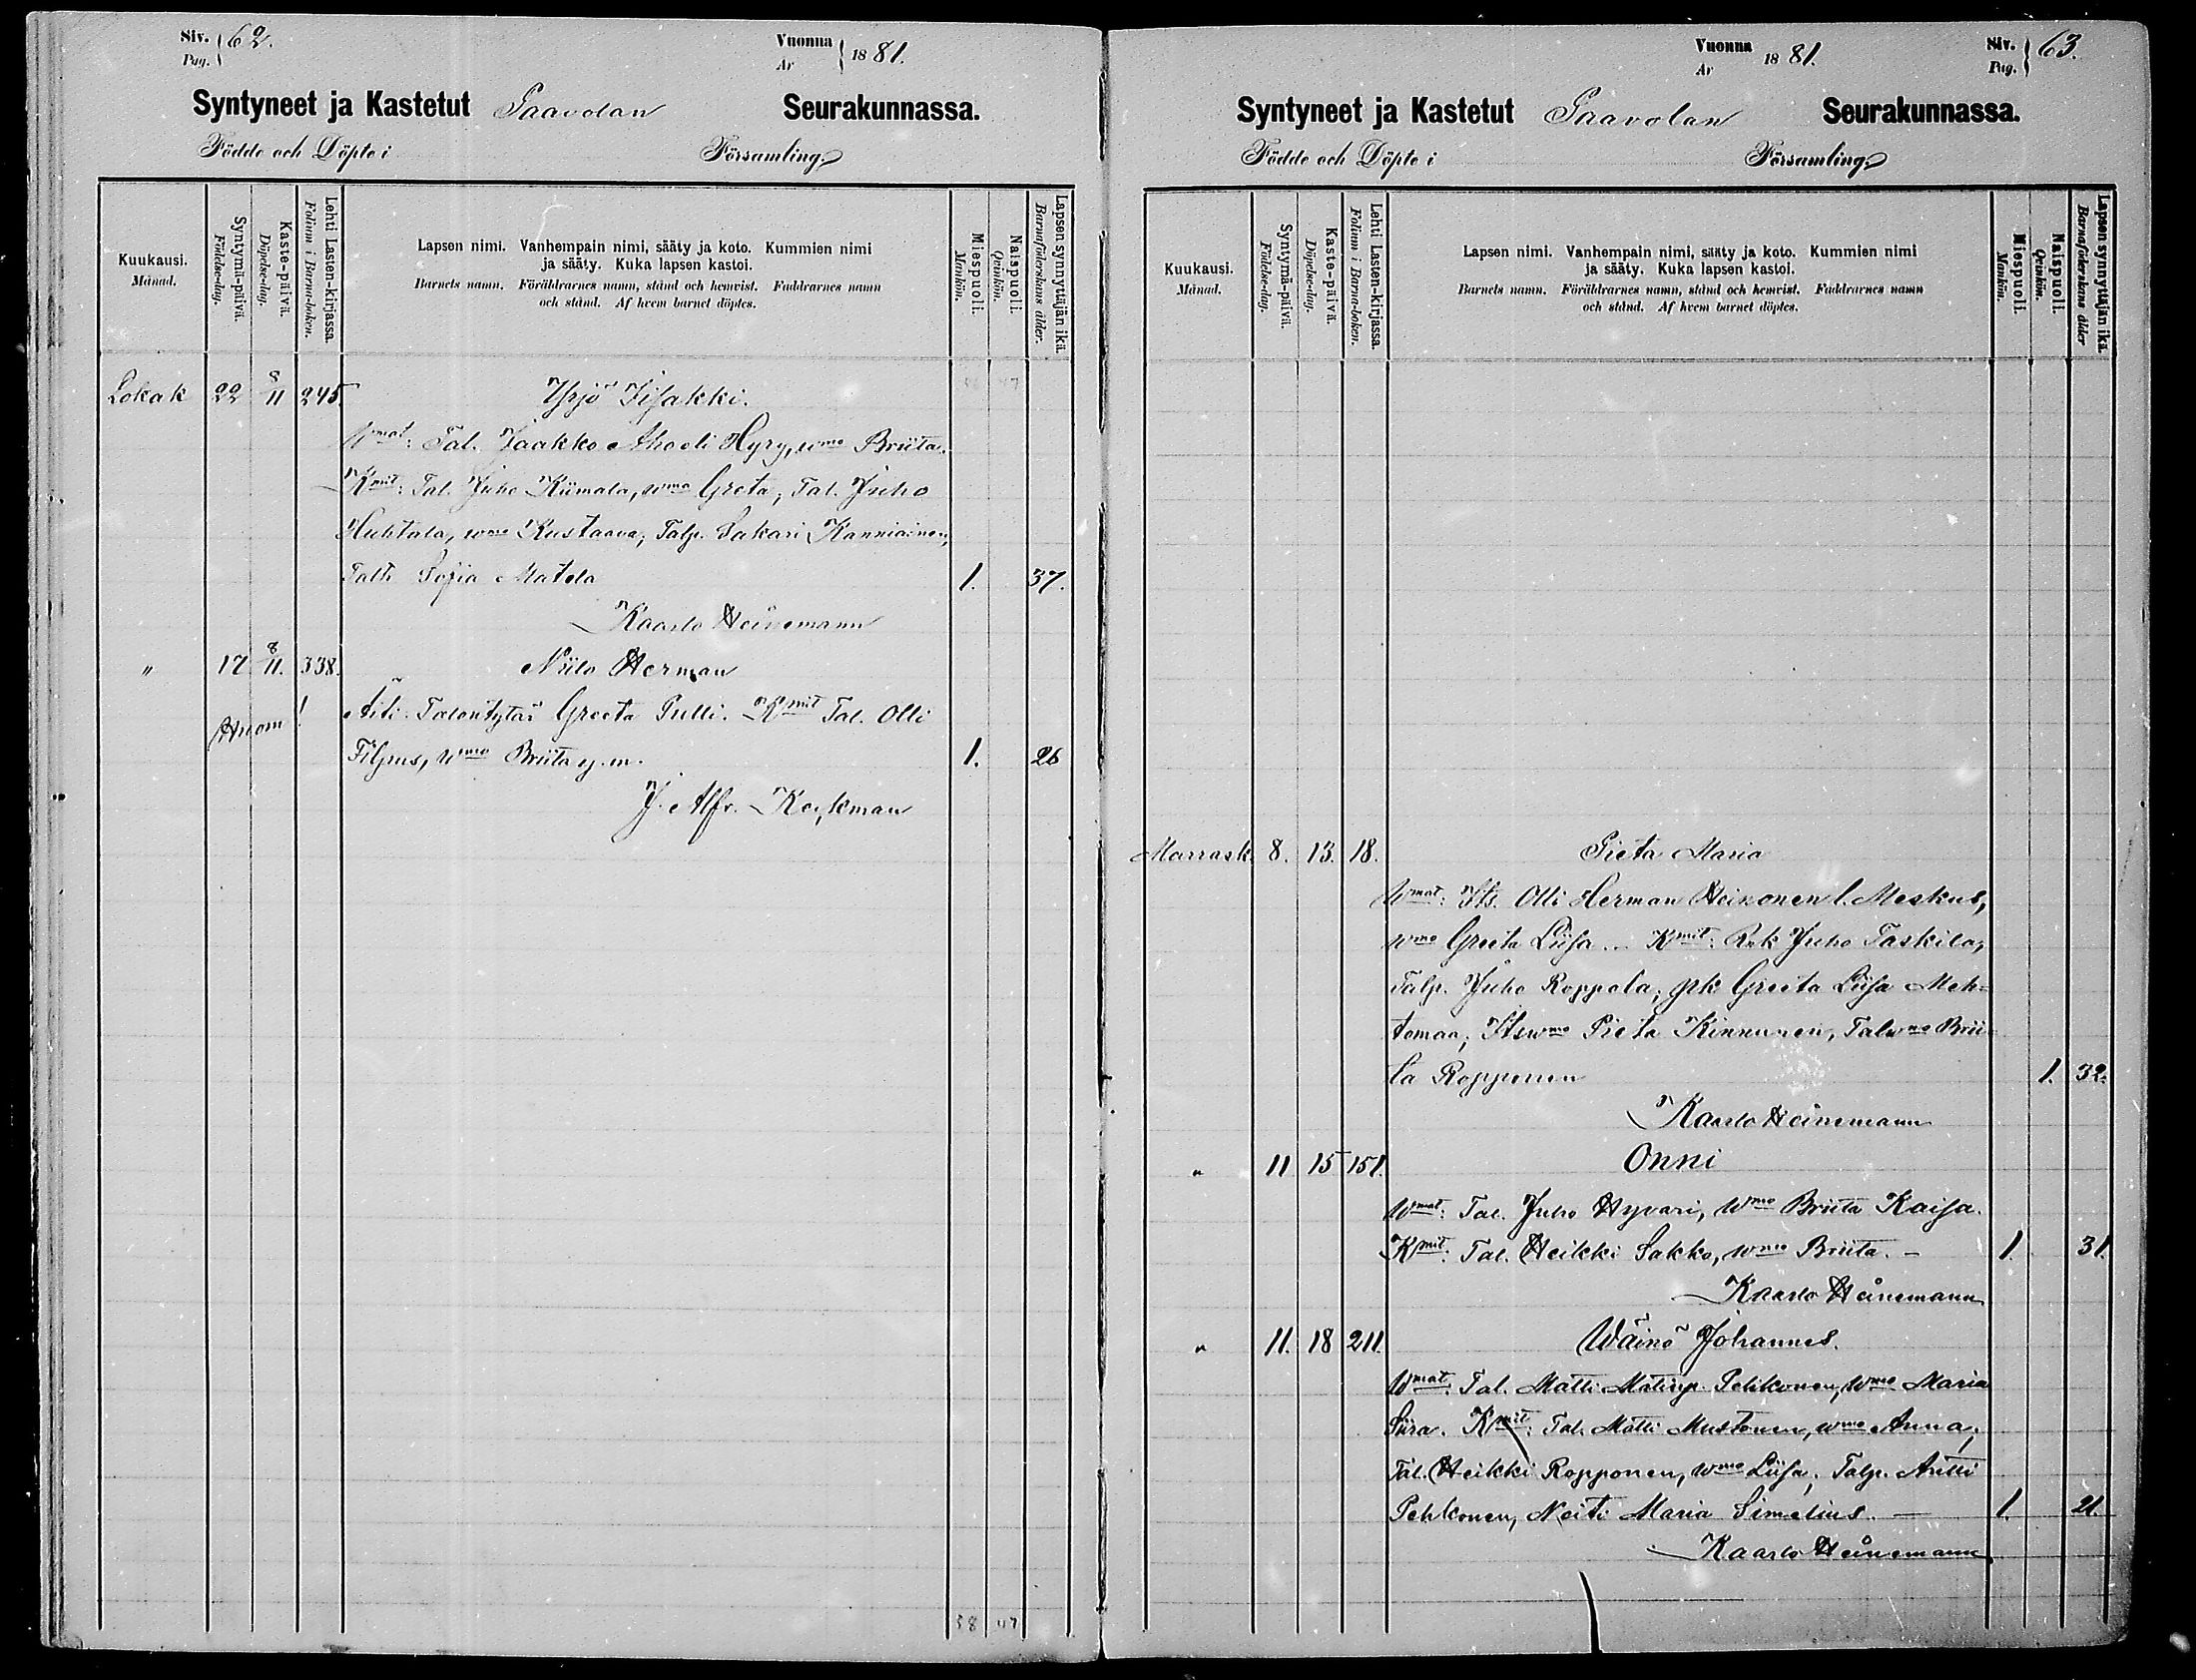 Siv. 62.
Pag.
Vuonna 1881.
År
Syntyneet ja Kastetut Paavolan Seurakunnassa.
Födde och Döpte i Församling.
Kuukausi.
Månad.
Syntymä-päivä.
Födelse-dag.
Kaste-päivä.
Döpelse-dag.
Lehti Lasten-kirjassa.
Folium i Barna-boken.
Lapsen nimi. Vanhempain nimi, sääty ja koto. Kummien nimi
ja sääty. Kuka lapsen kastoi.
Barnets namn. Föräldrarnes namn, stånd och hemvist. Faddrarnes namn
och stånd. Af hvem barnet döptes.
Miespuoli.
Mankön.
Naispuoli.
Qvinkön.
Lapsen synnyttäjän ikä.
Barnaföderskans ålder.
Lokak 22 8/11 245. Yrjö Iisakki.
Wmat: Tal. Jaakko Aho eli Hyry, wmo Briita.
Kmit: Tal. Juho Kiimala, wmo Greta, Tal. Juho
Huhtala, wmo Kustaava, Talp. Sakari Kanniainen,
Talt. Sofia Matela 1. 37.
Kaarlo Heinemann
" 17 8/11. 338. Niilo Herman
Huom! Äiti. Talontytär Greeta Pulli. Kmit Tal. Olli
Filpus, wmo Briita y.m. 1. 26
J. Alfr. Keckman
38 47
Vuonna 1881.
År
Siv. 63.
Pag.
Syntyneet ja Kastetut Paavolan Seurakunnassa.
Födde och Döpte i Församling.
Kuukausi.
Månad.
Syntymä-päivä.
Födelse-dag.
Kaste-päivä.
Döpelse-dag.
Lehti Lasten-kirjassa.
Folium i Barna-boken.
Lapsen nimi. Vanhempain nimi, sääty ja koto. Kummien nimi
ja sääty. Kuka lapsen kastoi.
Barnets namn. Föräldrarnes namn, stånd och hemvist. Faddrarnes namn
och stånd. Af hvem barnet döptes.
Miespuoli.
Mankön.
Naispuoli.
Qvinkön.
Lapsen synnyttäjän ikä.
Barnaföderskans ålder
Marrask. 8. 13. 18. Pieta Maria
Wmat: Its. Olli Herman Heinonen l. Meskus,
wmo Greeta Liisa. Kmit: Rek Juho Taskila,
Talp. Juho Roppola, pk Greeta Liisa Meh-
tomaa, Itswmo Pieta Kinnunen, Talwmo Brii-
ta Ropponen 1. 32.
Kaarlo Heinemann
" 11 15 151. Onni
Wmat: Tal. Juho Hyvari, Wmo Briita Kaisa.
Kmit: Tal. Heikki Sakko, wmo Briita. - 1. 31.
Kaarlo Heinemann
" 11. 18 211. Wäinö Johannes.
Wmat: Tal. Matti Matinp. Pehkonen, wmo Maria
Siira. Kmit: Tal. Matti Mustonen, wmo Anna,
Tal. Heikki Ropponen, wmo Liisa, Talp. Antti
Pehkonen, Neiti Maria Simelius. - 1. 21.
Kaarlo Heinemann